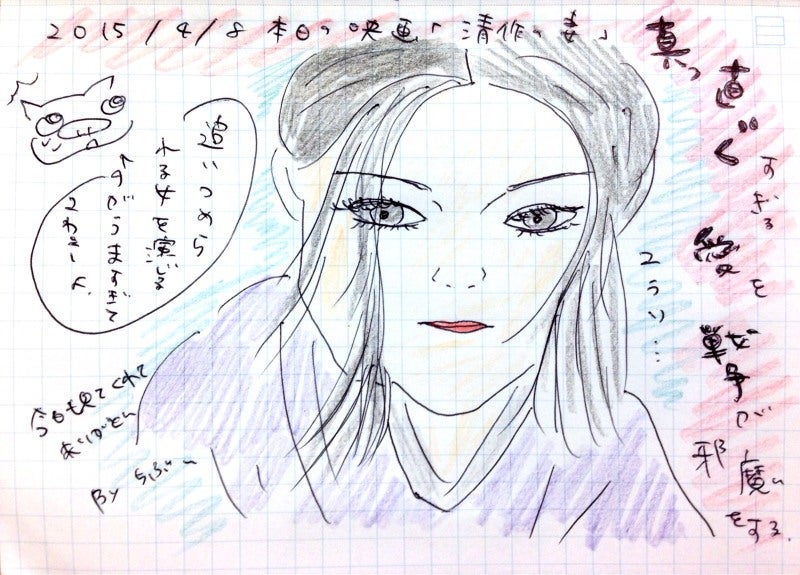 2015/4/8 本日の映画「清作の妻」
真っ直ぐすぎる
愛を
戦争が
邪魔をする.
追いつめら
れる女を演じる
↑のがうますぎて
今日も見てくれて
ありがとい
By